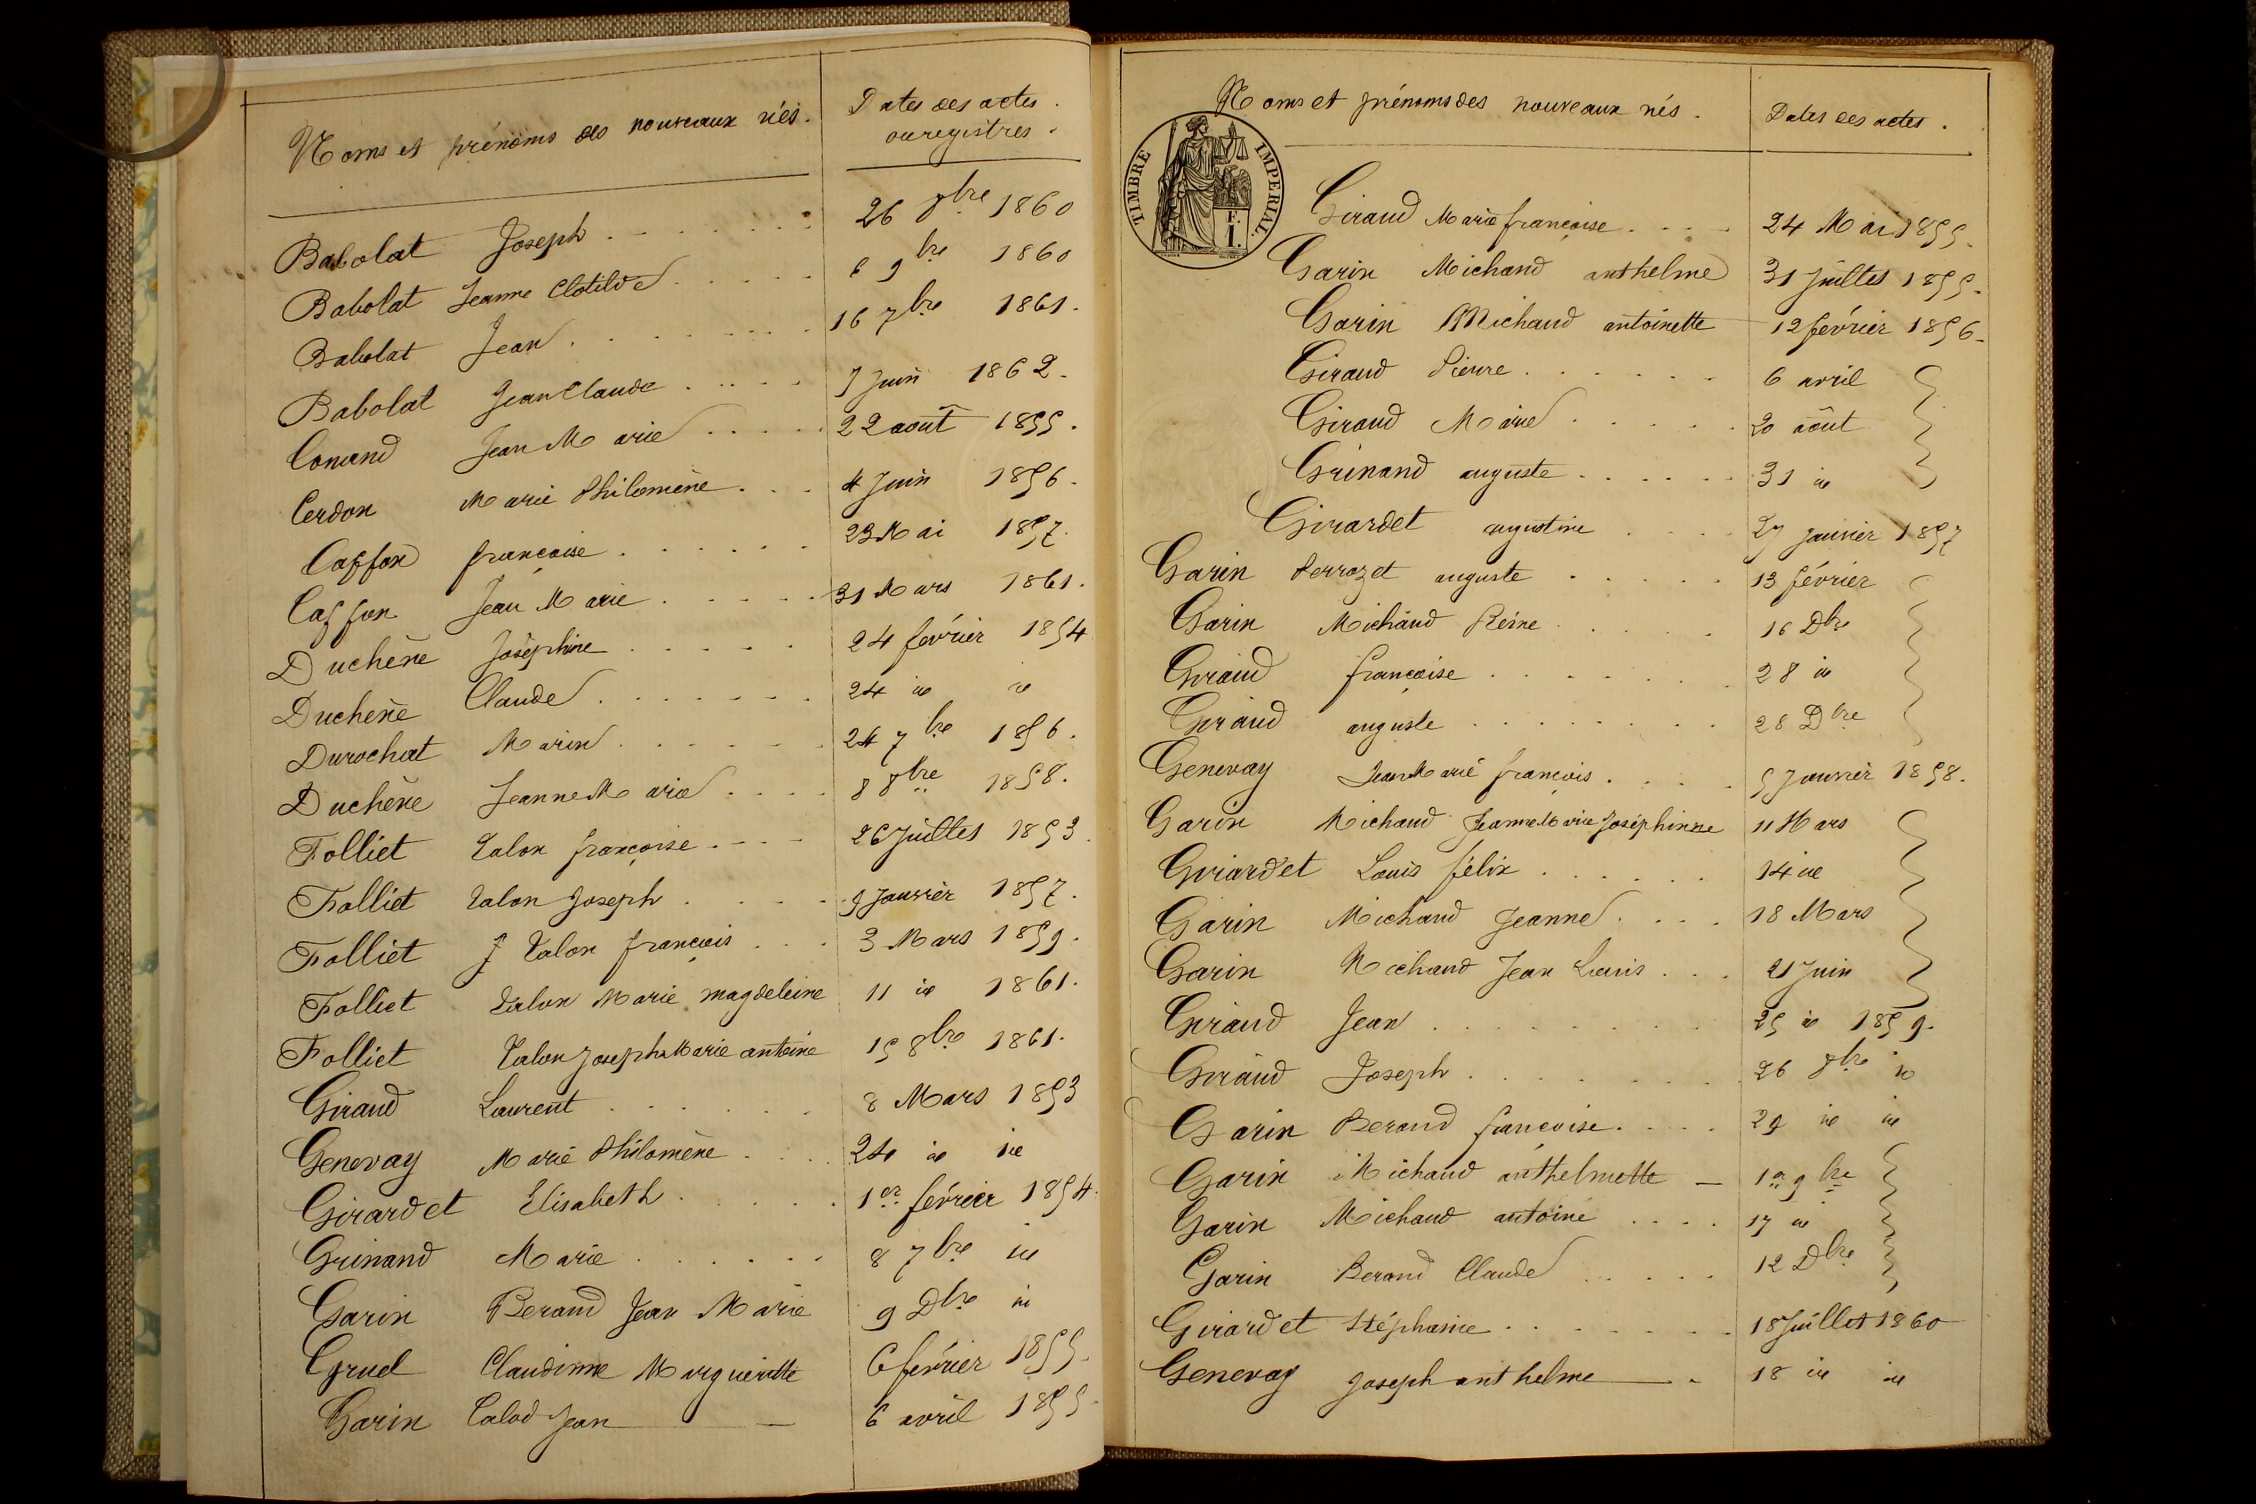 Noms et prénoms des nouveaux nés.
Dates des actes.
ou registres.
Babolat Joseph 26 8bre 1860
Babolat Jeanne Clotilde 6 9bre 1860
Babolat Jean 16 7bre 1861.
Babolat Jean Claude 7 Juin 1862.
Conand Jean Marie 22 août 1855.
Cerdon Marie Philomène 4 Juin 1856.
Caffon françoise 23 Mai 1857.
Caffon Jean Marie 31 Mars 1861.
Duchène Joséphine 24 février 1854
Duchène Claude 24 id id
Durochat Marie 24 7bre 1856.
Duchène Jeanne Marie 8 8bre 1858.
Folliet Talon françoise 26 Juillet 1853.
Folliet Talon Joseph 9 Janvier 1857.
Folliet J Talon françois 3 Mars 1859.
Folliet Talon Marie magdeleine 11 id 1861.
Folliet Talon Joseph Marie antoine 15 8bre 1861.
Giraud Laurent 8 Mars 1853
Genevay Marie Philomène 24 id id
Girardet Elisabeth 1er février 1854.
Grinand Marie 8 7bre id
Garin Beraud Jean Marie 9 Dbre id
Gruel Claudinne Margueritte 6 février 1855.
Garin Calod Jean 6 avril 1855.
Noms et prénoms des nouveaux nés.
Dates des actes.
TIMBRE IMPERIAL
F.
I.
Giraud Marie françoise 24 Mai 1855.
Garin Michaud anthelme 31 Juillet 1855.
Garin Michaud antoinette 12 février 1856.
Giraud Pierre 6 avril
Giraud Marie 20 août
Grinand auguste 31 id
Girardet augustine 27 Janvier 1857
Garin Perrozet auguste 13 février
Garin Michaud Reine 16 Dbre
Giraud françoise 28 id
Giraud auguste 28 Dbre
Genevay Jean Marie françois 5 Janvier 1858.
Garin Michaud Jeanne Marie Joséphinne 11 Mars
Girardet Louis félix 14 id
Garin Michaud Jeanne 18 Mars
Garin Michaud Jean Louis 21 Juin
Giraud Jean 25 id 1859.
Giraud Joseph 26 8bre id
Garin Beraud françoise 29 id id
Garin Michaud anthelmette 1er 9bre
Garin Michaud antoine 17 id
Garin Beraud Claude 12 Dbre
Girardet Stéphanie 18 Juillet 1860
Genevay Joseph anthelme 18 id id